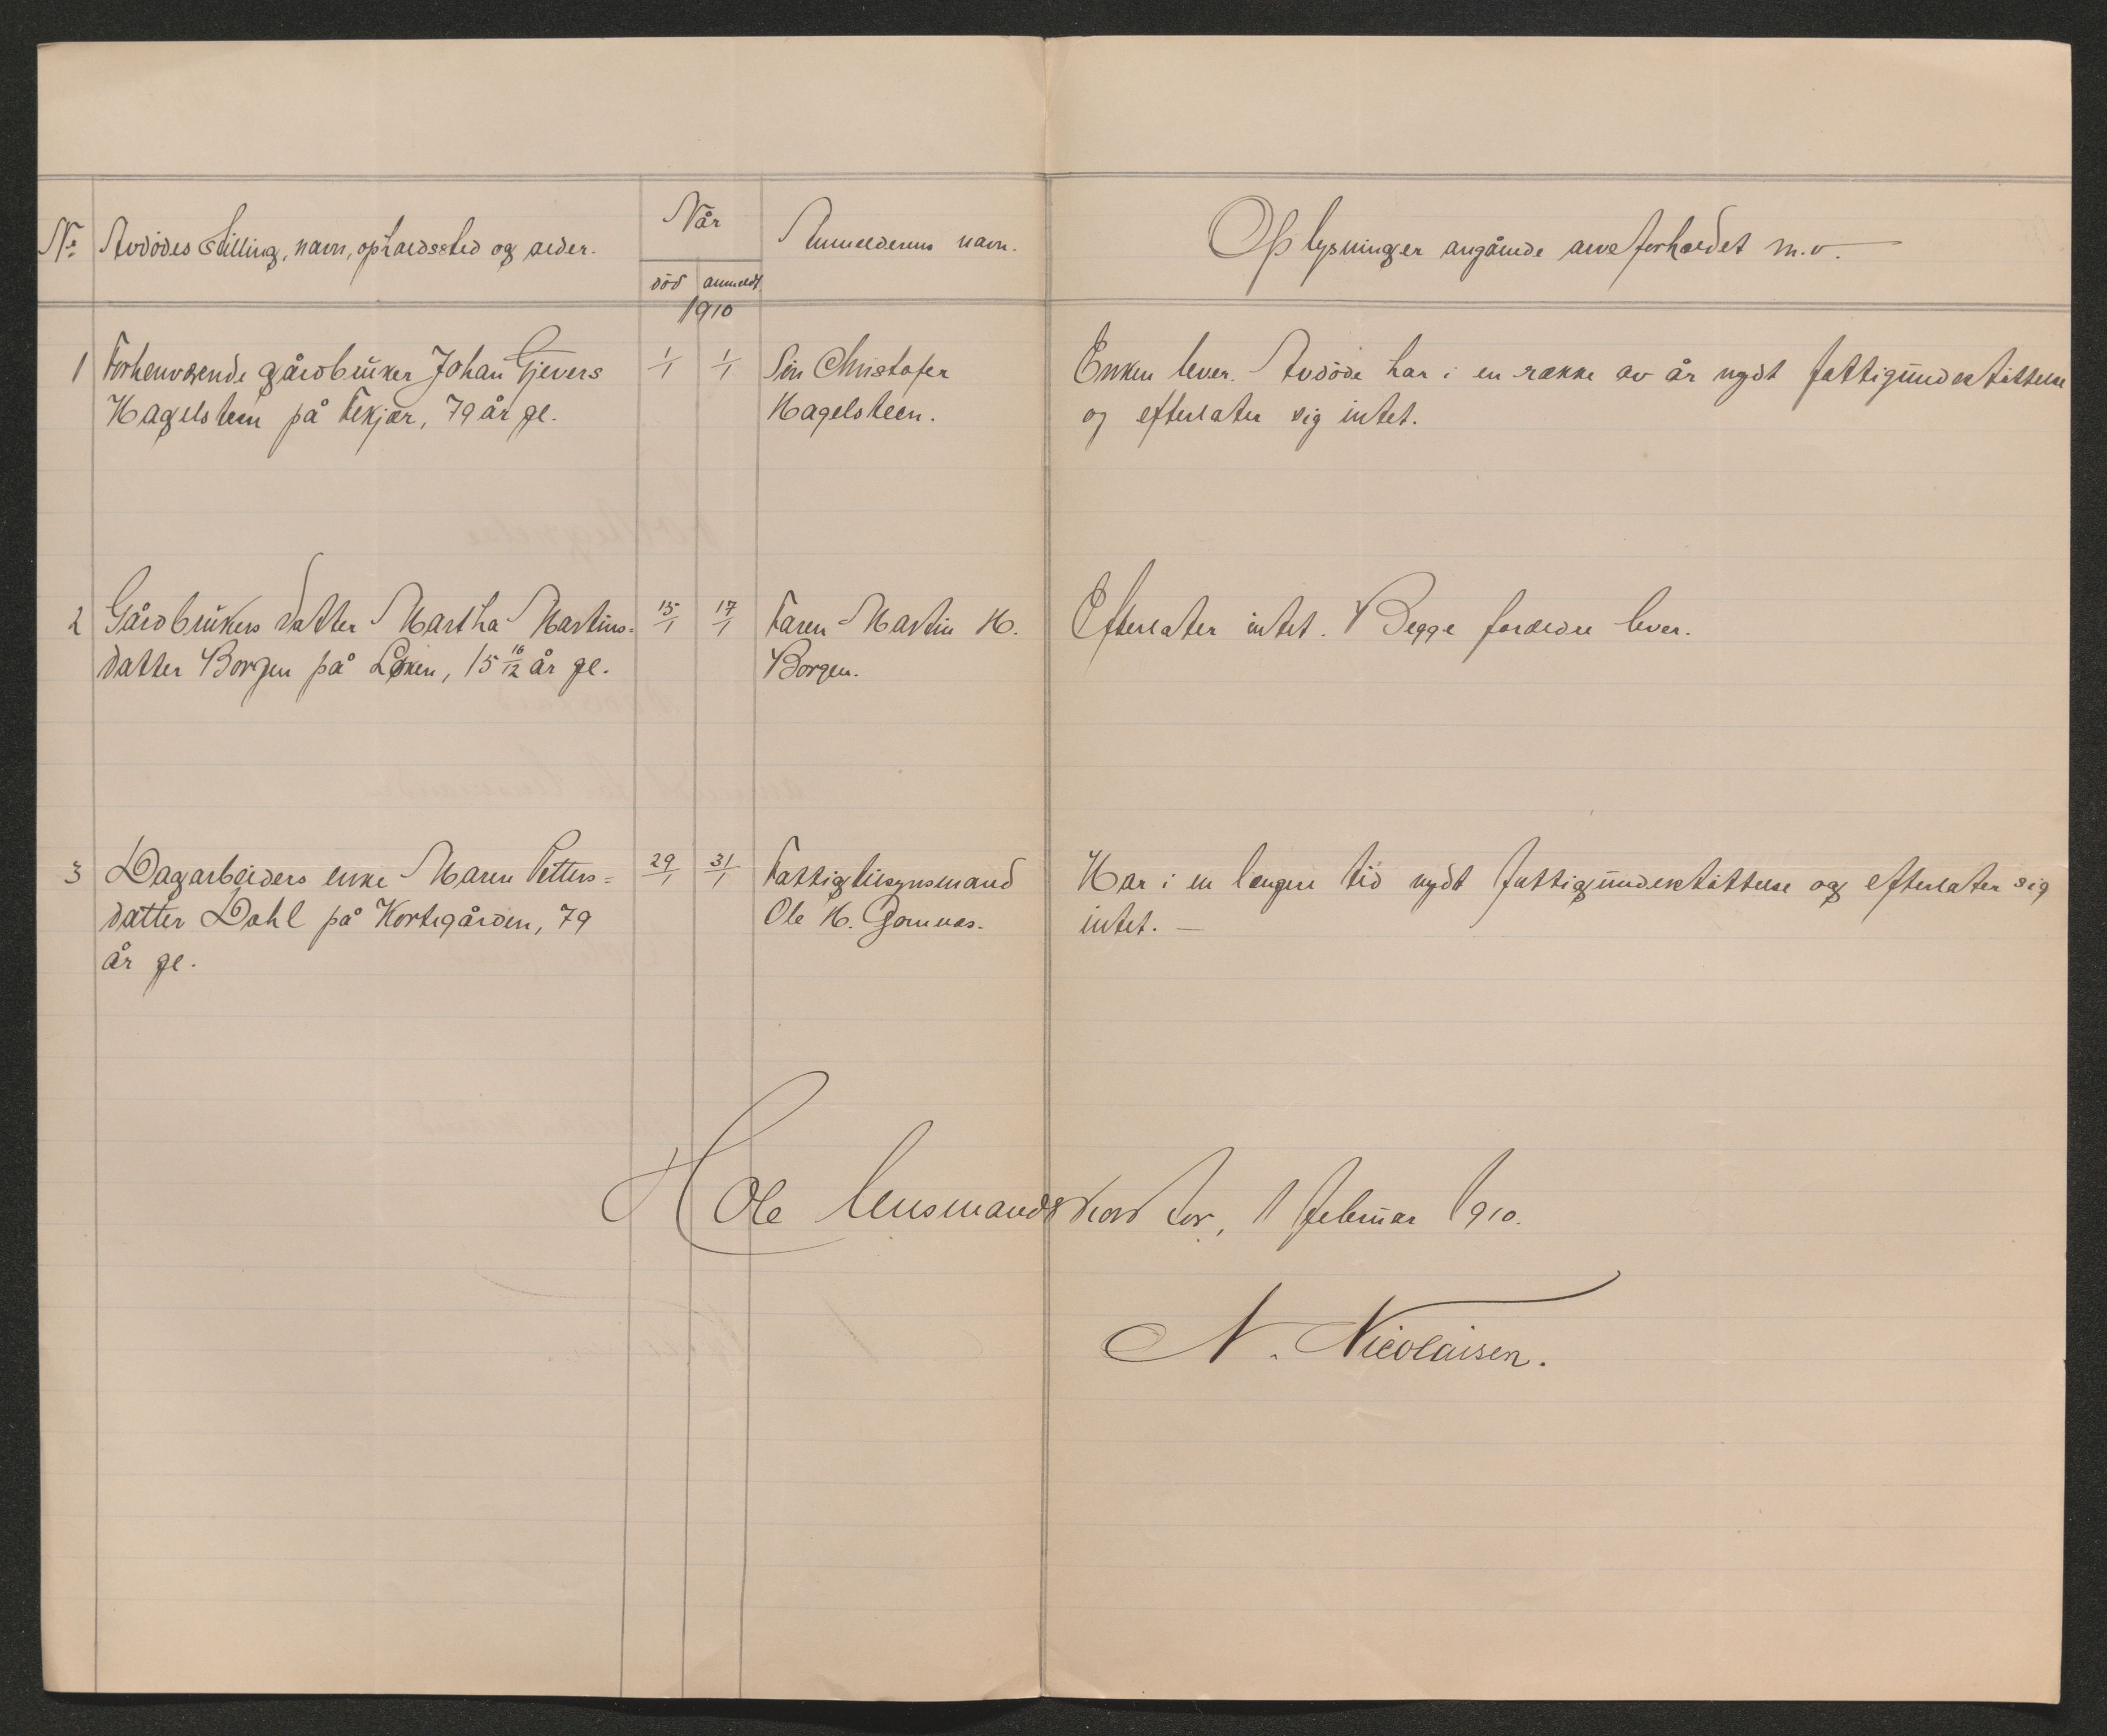 No Avdödes stilling, navn, opholdssted og alder.
Når
död anmeldt
1910
Anmelderens navn.
Oplysninger angående arveforholdet m.v.
1 Forhenværende gårdbruker Johan Gjevers
Hagelsteen på Fekjær, 79 år gl.
1/1 1/1
Sön Christofer
Hagelsteen.
Enken lever. Avdöde har i en række av år nydt fattigunderstöttelse
og efterlater sig intet.
2 Gårdbrukers datter Martha Martins=
datter Borgen på Løken, 15 10/12 år gl.
15/1 17/1
Faren Martin H.
Borgen.
Efterlater intet. Begge foreldre lever.
3 Dagarbeiders enke Maren Petters=
datter Dahl på Kortegården, 79
år gl.
29/1 31/1
Fattigtilsynsmand
Ole H. Gomnæs.
Har i en længere tid nydt fattigunderstöttelse og efterlater sig
intet. —
Hole lensmandskontor, 1 februar 1910.
N. Nicolaisen.